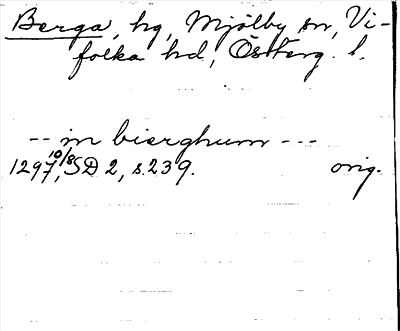 Berga, hg, Mjölby sn, Vi-
folka hd, Österg. l.
-- in bierghum ---
1297 10/8, SD 2, s. 239. orig.